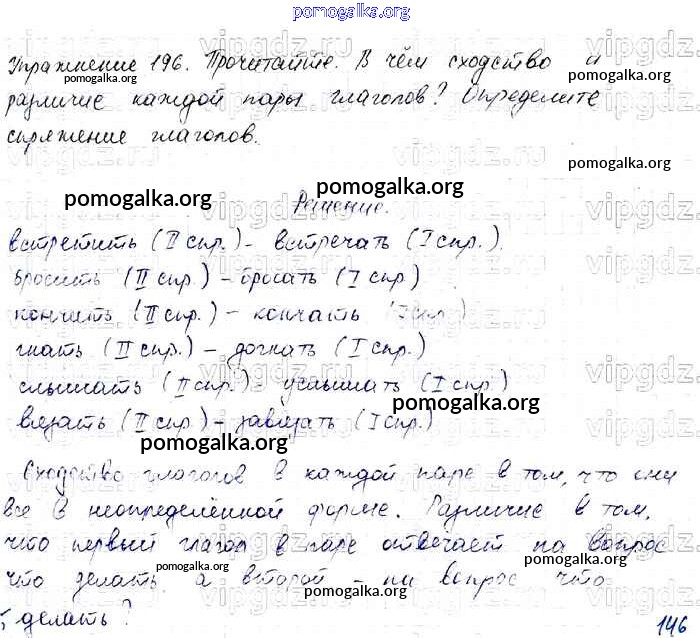 pomogalka.org
Упражнение 196. Прочитайте. В чём сходство и
различие каждой пары глаголов? Определите
спряжение глаголов.
Решение.
встретить (II спр.) - встречать (I спр.)
бросить (II спр.) - бросать (I спр.)
кончить (II спр.) - кончать (I спр.)
гнать (II спр.) - догнать (I спр.)
слышать (II спр.) - услышать (I спр.)
вязать (II спр.) - завязать (I спр.)
Сходство глаголов в каждой паре в том, что они
все в неопределённой форме. Различие в том,
что первый глагол в паре отвечает на вопрос
что делать, а второй - на вопрос что
делать?
146
pomogalka.org
pomogalka.org
pomogalka.org
pomogalka.org
pomogalka.org
pomogalka.org
pomogalka.org
pomogalka.org
pomogalka.org
pomogalka.org
vipgdz.ru